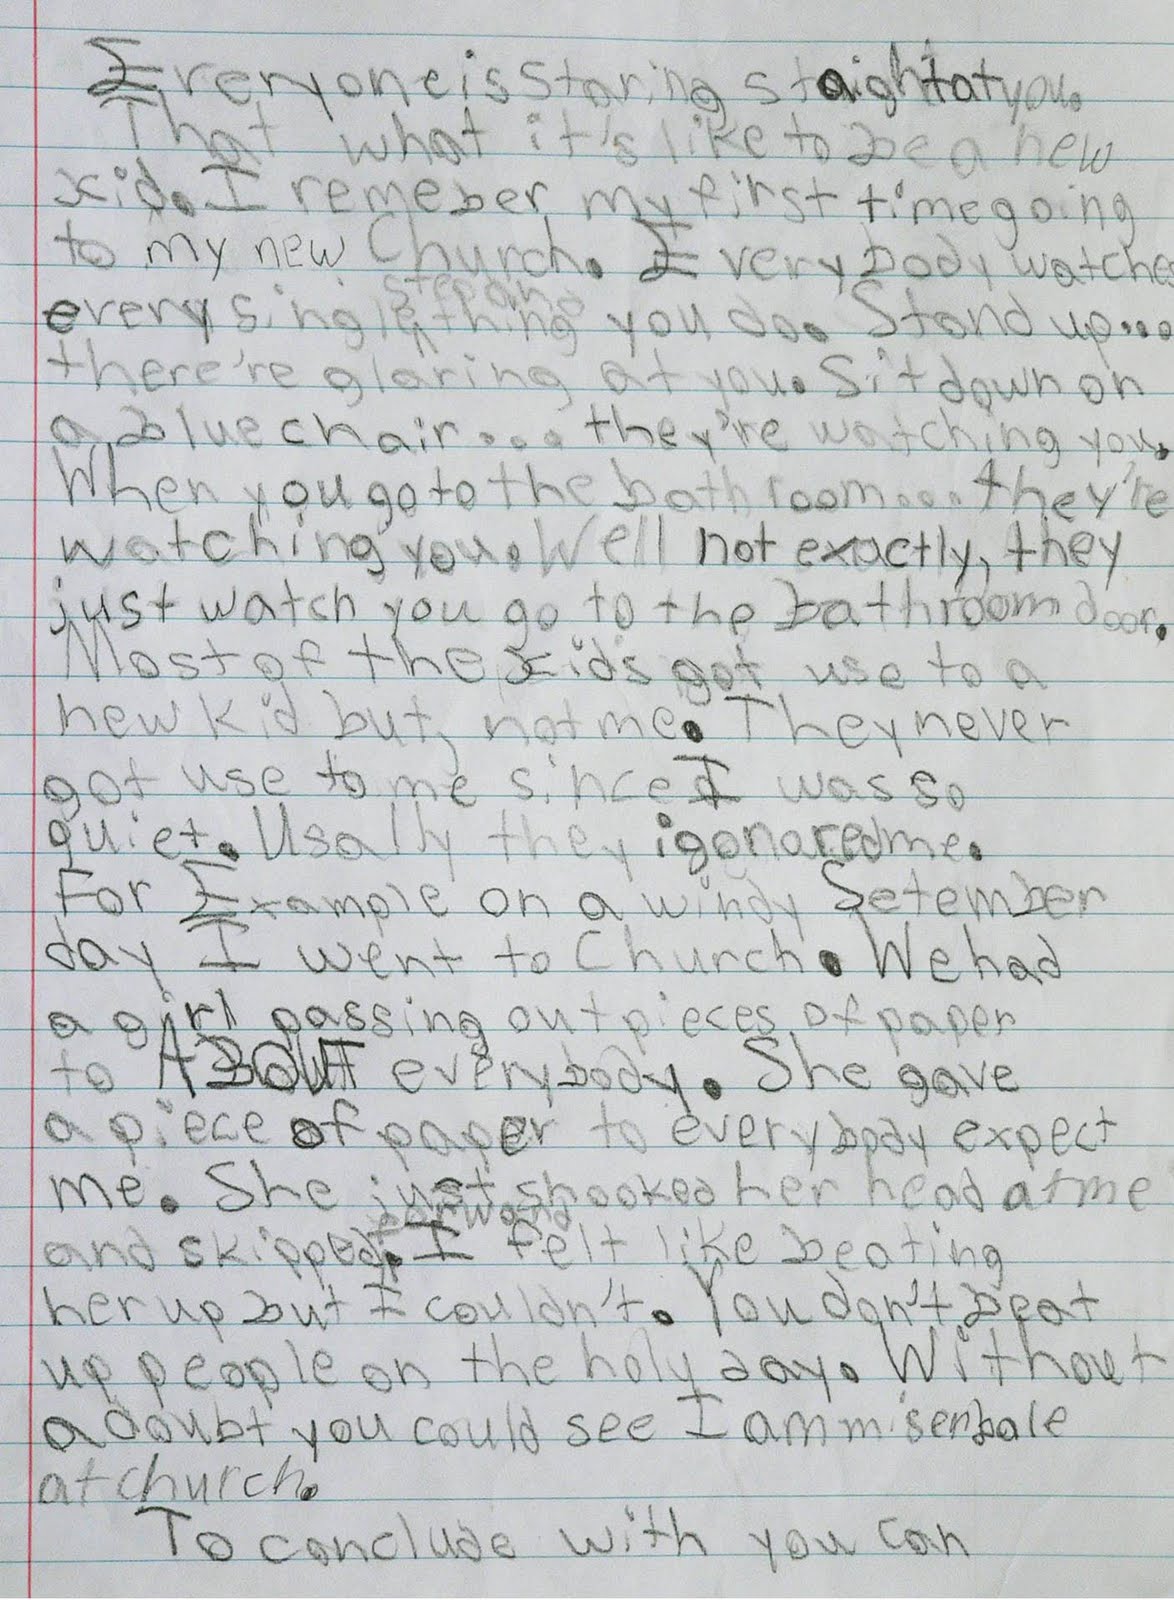 Everyone is staring staight at you.
That what it's like to be a new
kid. I remeber my first time going
to my new Church. Every body watche
stepping
every single thing you do. Stand up...
there're glaring at you. Sit down on
a blue chair... they're watching you.
When you go to the bathroom... they're
watching you. Well not exactly, they
just watch you go to the bathroom door.
Most of the kids got use to a
new kid but, not me. They never
got use to me since I was so
quiet. Usally they igonored me.
For Example on a windy Setember
day I went to Church. We had
a girl passing out pieces of paper
to ABOUT everybody. She gave
a piece of paper to everybody expect
me. She just shooked her head at me
forward
and skipped. I felt like beating
her up but I couldn't. You don't beat
up people on the holy day. Without
a doubt you could see I am miserbale
at church.
To conclude with you can